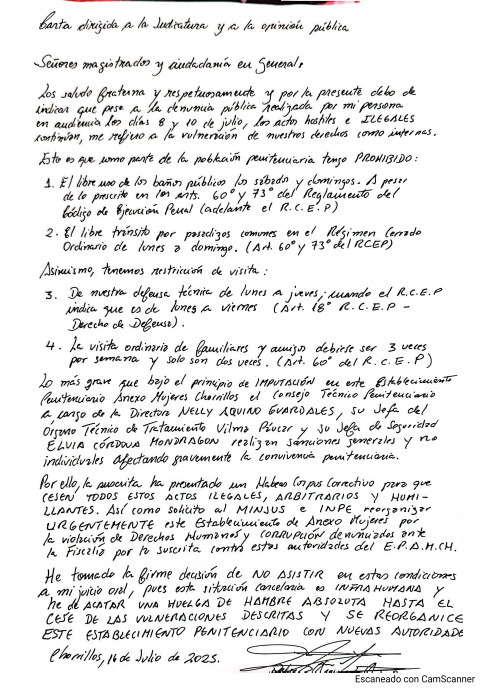 Carta dirigida a la Judicatura y a la opinión pública
Señores magistrados y ciudadanía en General:
Los saludo fraterna y respetuosamente y por la presente debo de
indicar que pese a la denuncia pública realizada por mi persona
en audiencia los días 8 y 10 de julio, los actos hostiles e ILEGALES
continúan, me refiero a la vulneración de nuestros derechos como internas.
Esto es que como parte de la población penitenciaria tengo PROHIBIDO:
1. El libre uso de los baños públicos los sábados y domingos. A pesar
de lo prescrito en los arts. 60° y 73° del Reglamento del
Código de Ejecución Penal (adelante el R.C.E.P)
2. El libre tránsito por pasadizos comunes en el Régimen Cerrado
Ordinario de lunes a domingo. (Art. 60° y 73° del RCEP)
Asimismo, tenemos restricción de visita:
3. De nuestra defensa técnica de lunes a jueves, cuando el R.C.E.P
indica que es de lunes a viernes (Art. 18° R.C.E.P -
Derecho de Defensa).
4. La visita ordinaria de familiares y amigos debiese ser 3 veces
por semana y solo son dos veces. (Art. 60° del R.C.E.P)
Lo más grave que bajo el principio de IMPUTACIÓN en este Establecimiento
Penitenciario Anexo Mujeres Chorrillos el Consejo Técnico Penitenciario
a cargo de la Directora NELLY AQUINO GUARDALES, su Jefa del
Órgano Técnico de Tratamiento Vilma Páucar y su Jefa de Seguridad
ELVIA CÓRDOVA MONDRAGON realizan sanciones generales y no
individuales afectando gravemente la convivencia penitenciaria.
Por ello, la suscrita ha presentado un Hábeas Corpus Correctivo para que
CESEN TODOS ESTOS ACTOS ILEGALES, ARBITRARIOS Y HUMI-
LLANTES. Así como solicito al MINJUS e INPE reorganizar
URGENTEMENTE este Establecimiento de Anexo Mujeres por
la violación de Derechos Humanos y CORRUPCIÓN denunciados ante
la Fiscalía por la suscrita contra estas autoridades del E.P.A.M.CH.
He tomado la firme decisión de NO ASISTIR en estas condiciones
a mi juicio oral, pues esta situación carcelaria es INFRAHUMANA y
he de ACATAR UNA HUELGA DE HAMBRE ABSOLUTA HASTA EL
CESE DE LAS VULNERACIONES DESCRITAS Y SE REORGANICE
ESTE ESTABLECIMIENTO PENITENCIARIO CON NUEVAS AUTORIDADE
Chorrillos, 16 de Julio de 2025.
Escaneado con CamScanner